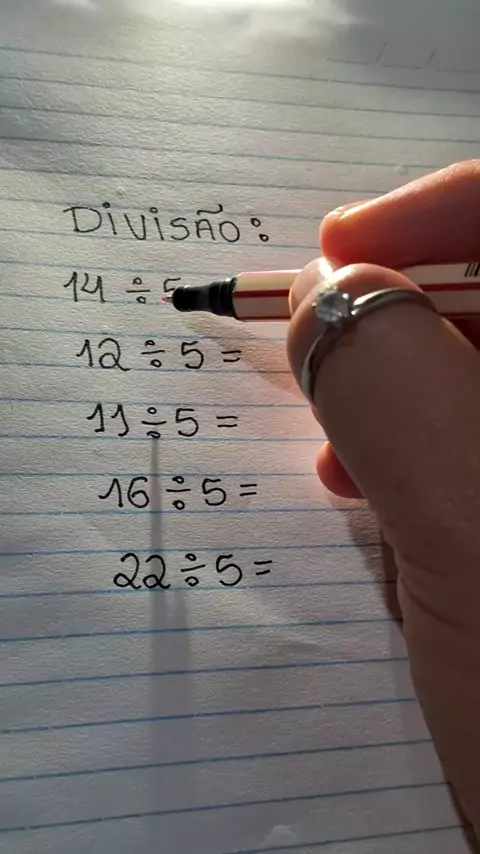 DIVISÃO:
14 ÷ 5
12 ÷ 5 =
11 ÷ 5 =
16 ÷ 5 =
22 ÷ 5 =